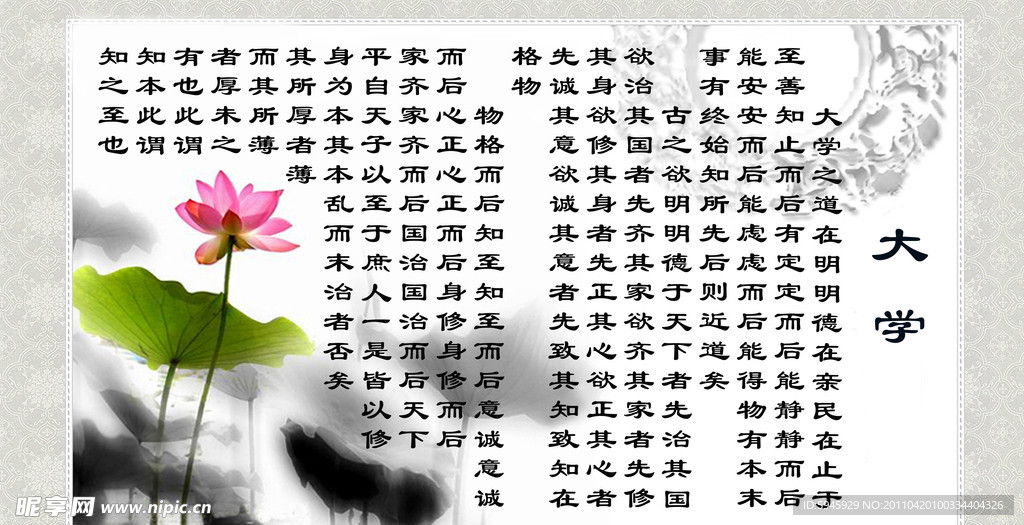 大学
大学之道在明明德在亲民在止于
至善知止而后有定定而后能静静而后
能安安而后能虑虑而后能得物有本末
事有终始知所先后则近道矣
古之欲明明德于天下者先治其国
欲治其国者先齐其家欲齐其家者先修
其身欲修其身者先正其心欲正其心者
先诚其意欲诚其意者先致其知致知在
格物
物格而后知至知至而后意诚意诚
而后心正心正而后身修身修而后
家齐家齐而后国治国治而后天下
平自天子以至于庶人一是皆以修
身为本其本乱而末治者否矣
其所厚者薄
而其所薄
者厚未之
有也此谓
知本此谓
知之至也
昵享网 www.nipic.cn
NO:20110420100334404326